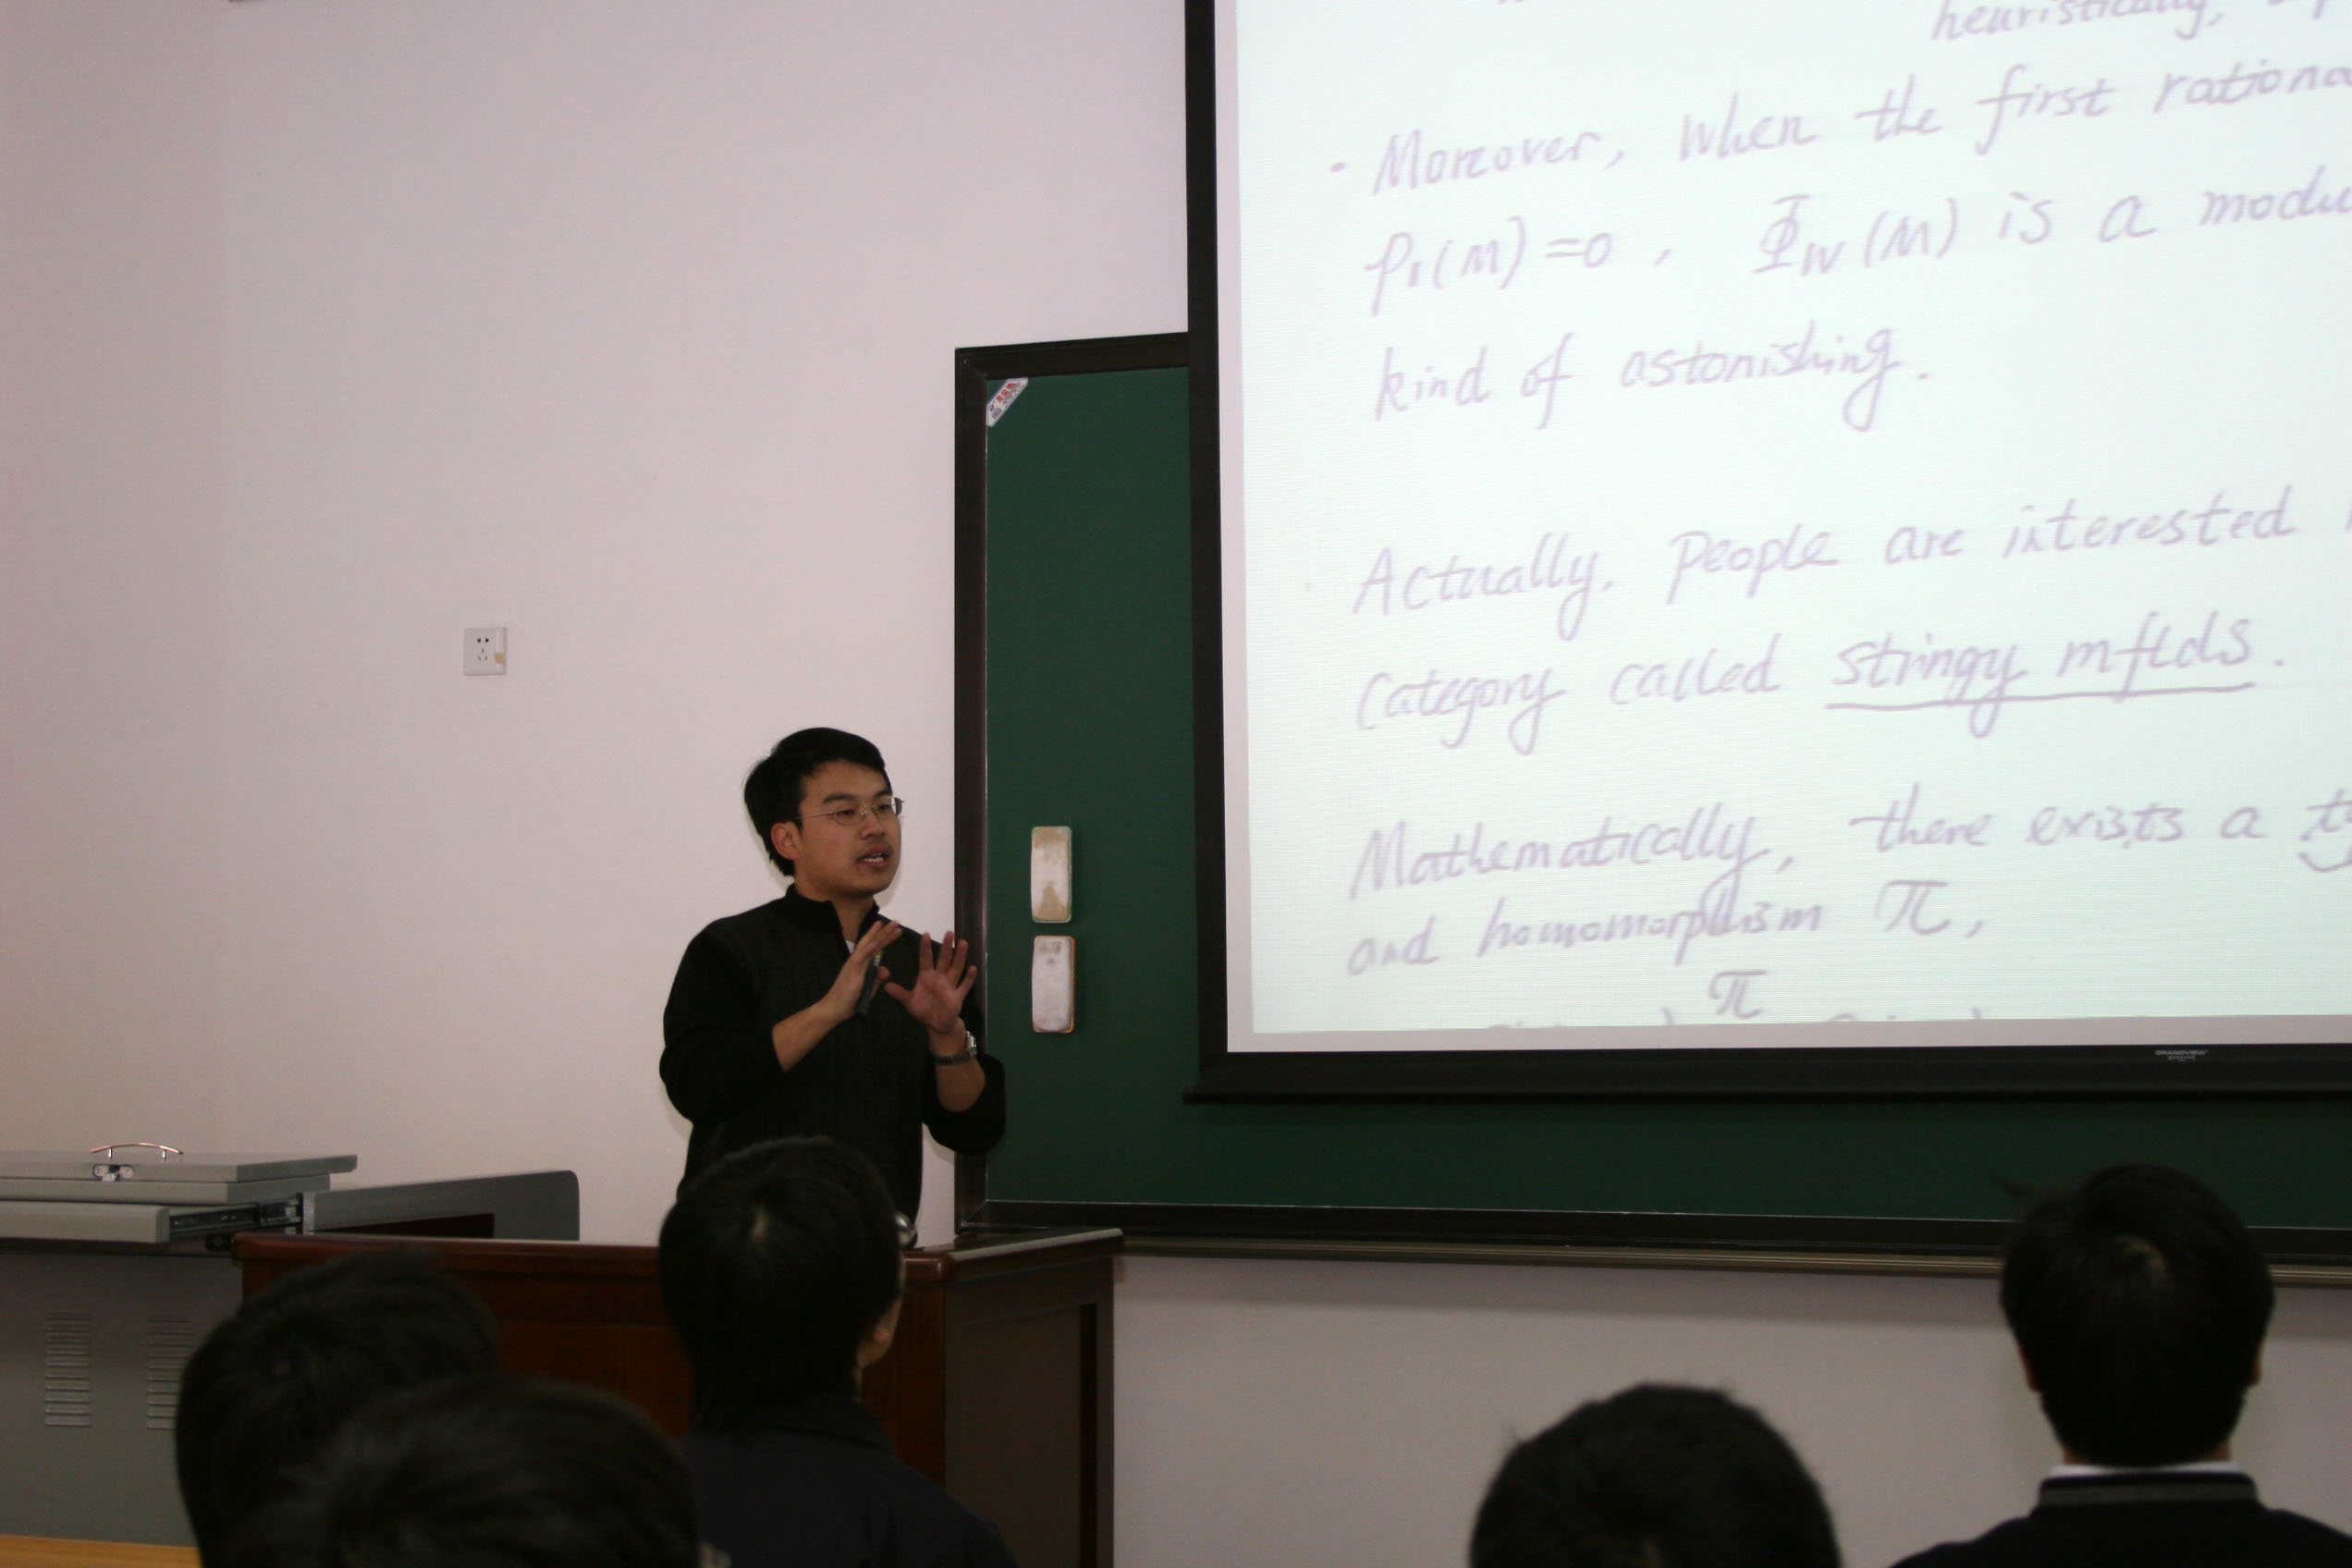 heuristically,
· Moreover, when the first rationa
p₁(M) = 0 , Φ_W (M) is a modu
kind of astonishing.
· Actually. People are interested
Category called stringy mflds.
Mathematically, there exists a
and homomorphism π,
π
GRANDVIEW